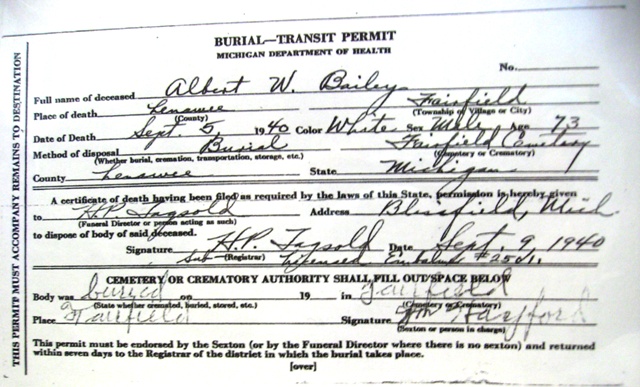 BURIAL—TRANSIT PERMIT
MICHIGAN DEPARTMENT OF HEALTH
No.
Full name of deceased Albert W. Bailey
Place of death Lenawee Fairfield
(County) (Township or Village or City)
Date of Death Sept 5, 1940 Color White Sex Male Age 73
Method of disposal Burial Fairfield Cemetery
(Whether burial, cremation, transportation, storage, etc.) (Cemetery or Crematory)
County Lenawee State Michigan
A certificate of death having been filed as required by the laws of this State, permission is hereby given
to H.P. Tagsold Address Blissfield, Mich
(Funeral Director or person acting as such)
to dispose of body of said deceased.
Signature H.P. Tagsold Date Sept. 9, 1940
Sub (Registrar) Licensed Embalmer
CEMETERY OR CREMATORY AUTHORITY SHALL FILL OUT SPACE BELOW
Body was buried on 19 in Fairfield
(State whether cremated, buried, stored, etc.) (Cemetery or Crematory)
Place Fairfield Signature Hayford
(Sexton or person in charge)
This permit must be endorsed by the Sexton (or by the Funeral Director where there is no sexton) and returned
within seven days to the Registrar of the district in which the burial takes place.
[over]
THIS PERMIT MUST ACCOMPANY REMAINS TO DESTINATION